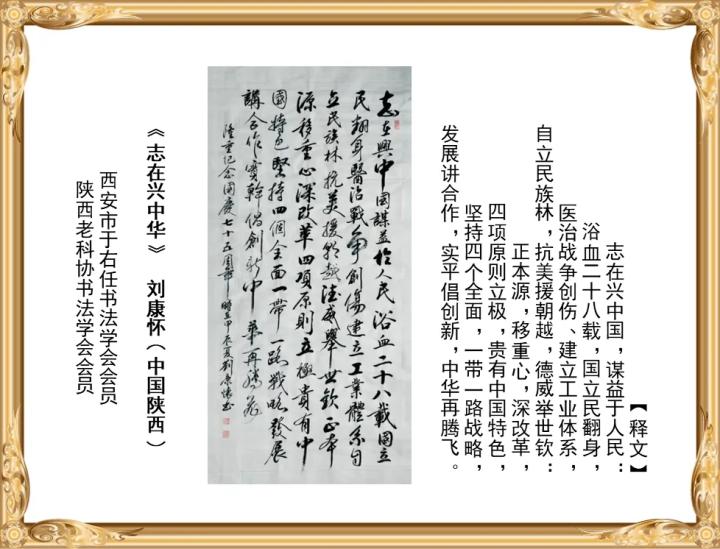 【释文】
志在兴中国，谋益于人民：
浴血二十八载，国立民翻身，
医治战争创伤、建立工业体系，
自立民族林，抗美援朝越，德威举世钦：
正本源，移重心，深改革，
四项原则立极，贵有中国特色，
坚持四个全面，一带一路战略，
发展讲合作，实平倡创新，中华再腾飞。
志在興中國謀益於人民浴血二十八載國立
民翻身醫治戰爭創傷建立工業體系自
立民族林抗美援朝越德威舉世欽正本
源移重心深改革四項原則立極貴有中
國特色堅持四個全面一帶一路戰略發展
講合作實幹倡創新中華再騰飛
隆重纪念國慶七十五周年時在甲辰夏劉康懷書
《志在兴中华》 刘康怀（中国陕西）
西安市于右任书法学会会员
陕西老科协书法学会会员